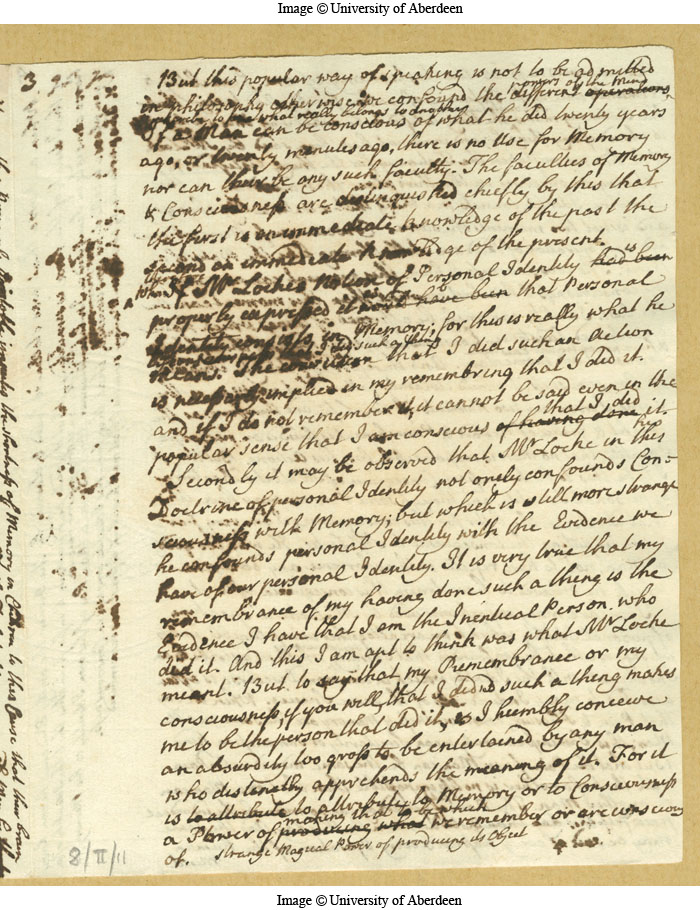 Image © University of Aberdeen
3
But this popular way of speaking is not to be admitted
in philosophy otherwise we confound the different operations
powers of the mind
to one what really belongs to another
If a Man can be conscious of what he did twenty years
ago, or twenty minutes ago, there is no Use for Memory
nor can there be any such faculty. The faculties of Memory
& Consciousness are distinguished chiefly by this that
the first is an immediate knowledge of the past the
second an immediate Knowledge of the present.
If Mr Lockes Notion of Personal Identity had been
is
properly expressed it would have been that Personal
Identity consists in Memory; for this is really what he
means. The conviction that I did such an Action
is necessarily implied in my remembring that I did it.
and if I do not remember it, it cannot be said even in the
popular sense that I am conscious of having done it.
that I did
Secondly it may be observed that Mr Locke in this
Doctrine of personal Identity not onely confounds Con=
sciousness with Memory; but which is still more strange
he confounds personal Identity with the Evidence we
have of our personal Identity. It is very true that my
remembrance of my having done such a thing is the
Evidence I have that I am the Inentical Person who
did it. And this I am apt to think was what Mr Locke
meant. But to say that my Remembrance or my
consciousness if you will, that I did such a thing makes
me to be the person that did it, is I humbly conceive
an absurdity too gross to be entertained by any man
who distinctly apprehends the meaning of it. For it
is to attribute to attribute to Memory or to Consciousness
making that to be which
a Power of producing what we remember or are conscious
of. strange Magical Power of producing its Object
8/II/11
Image © University of Aberdeen